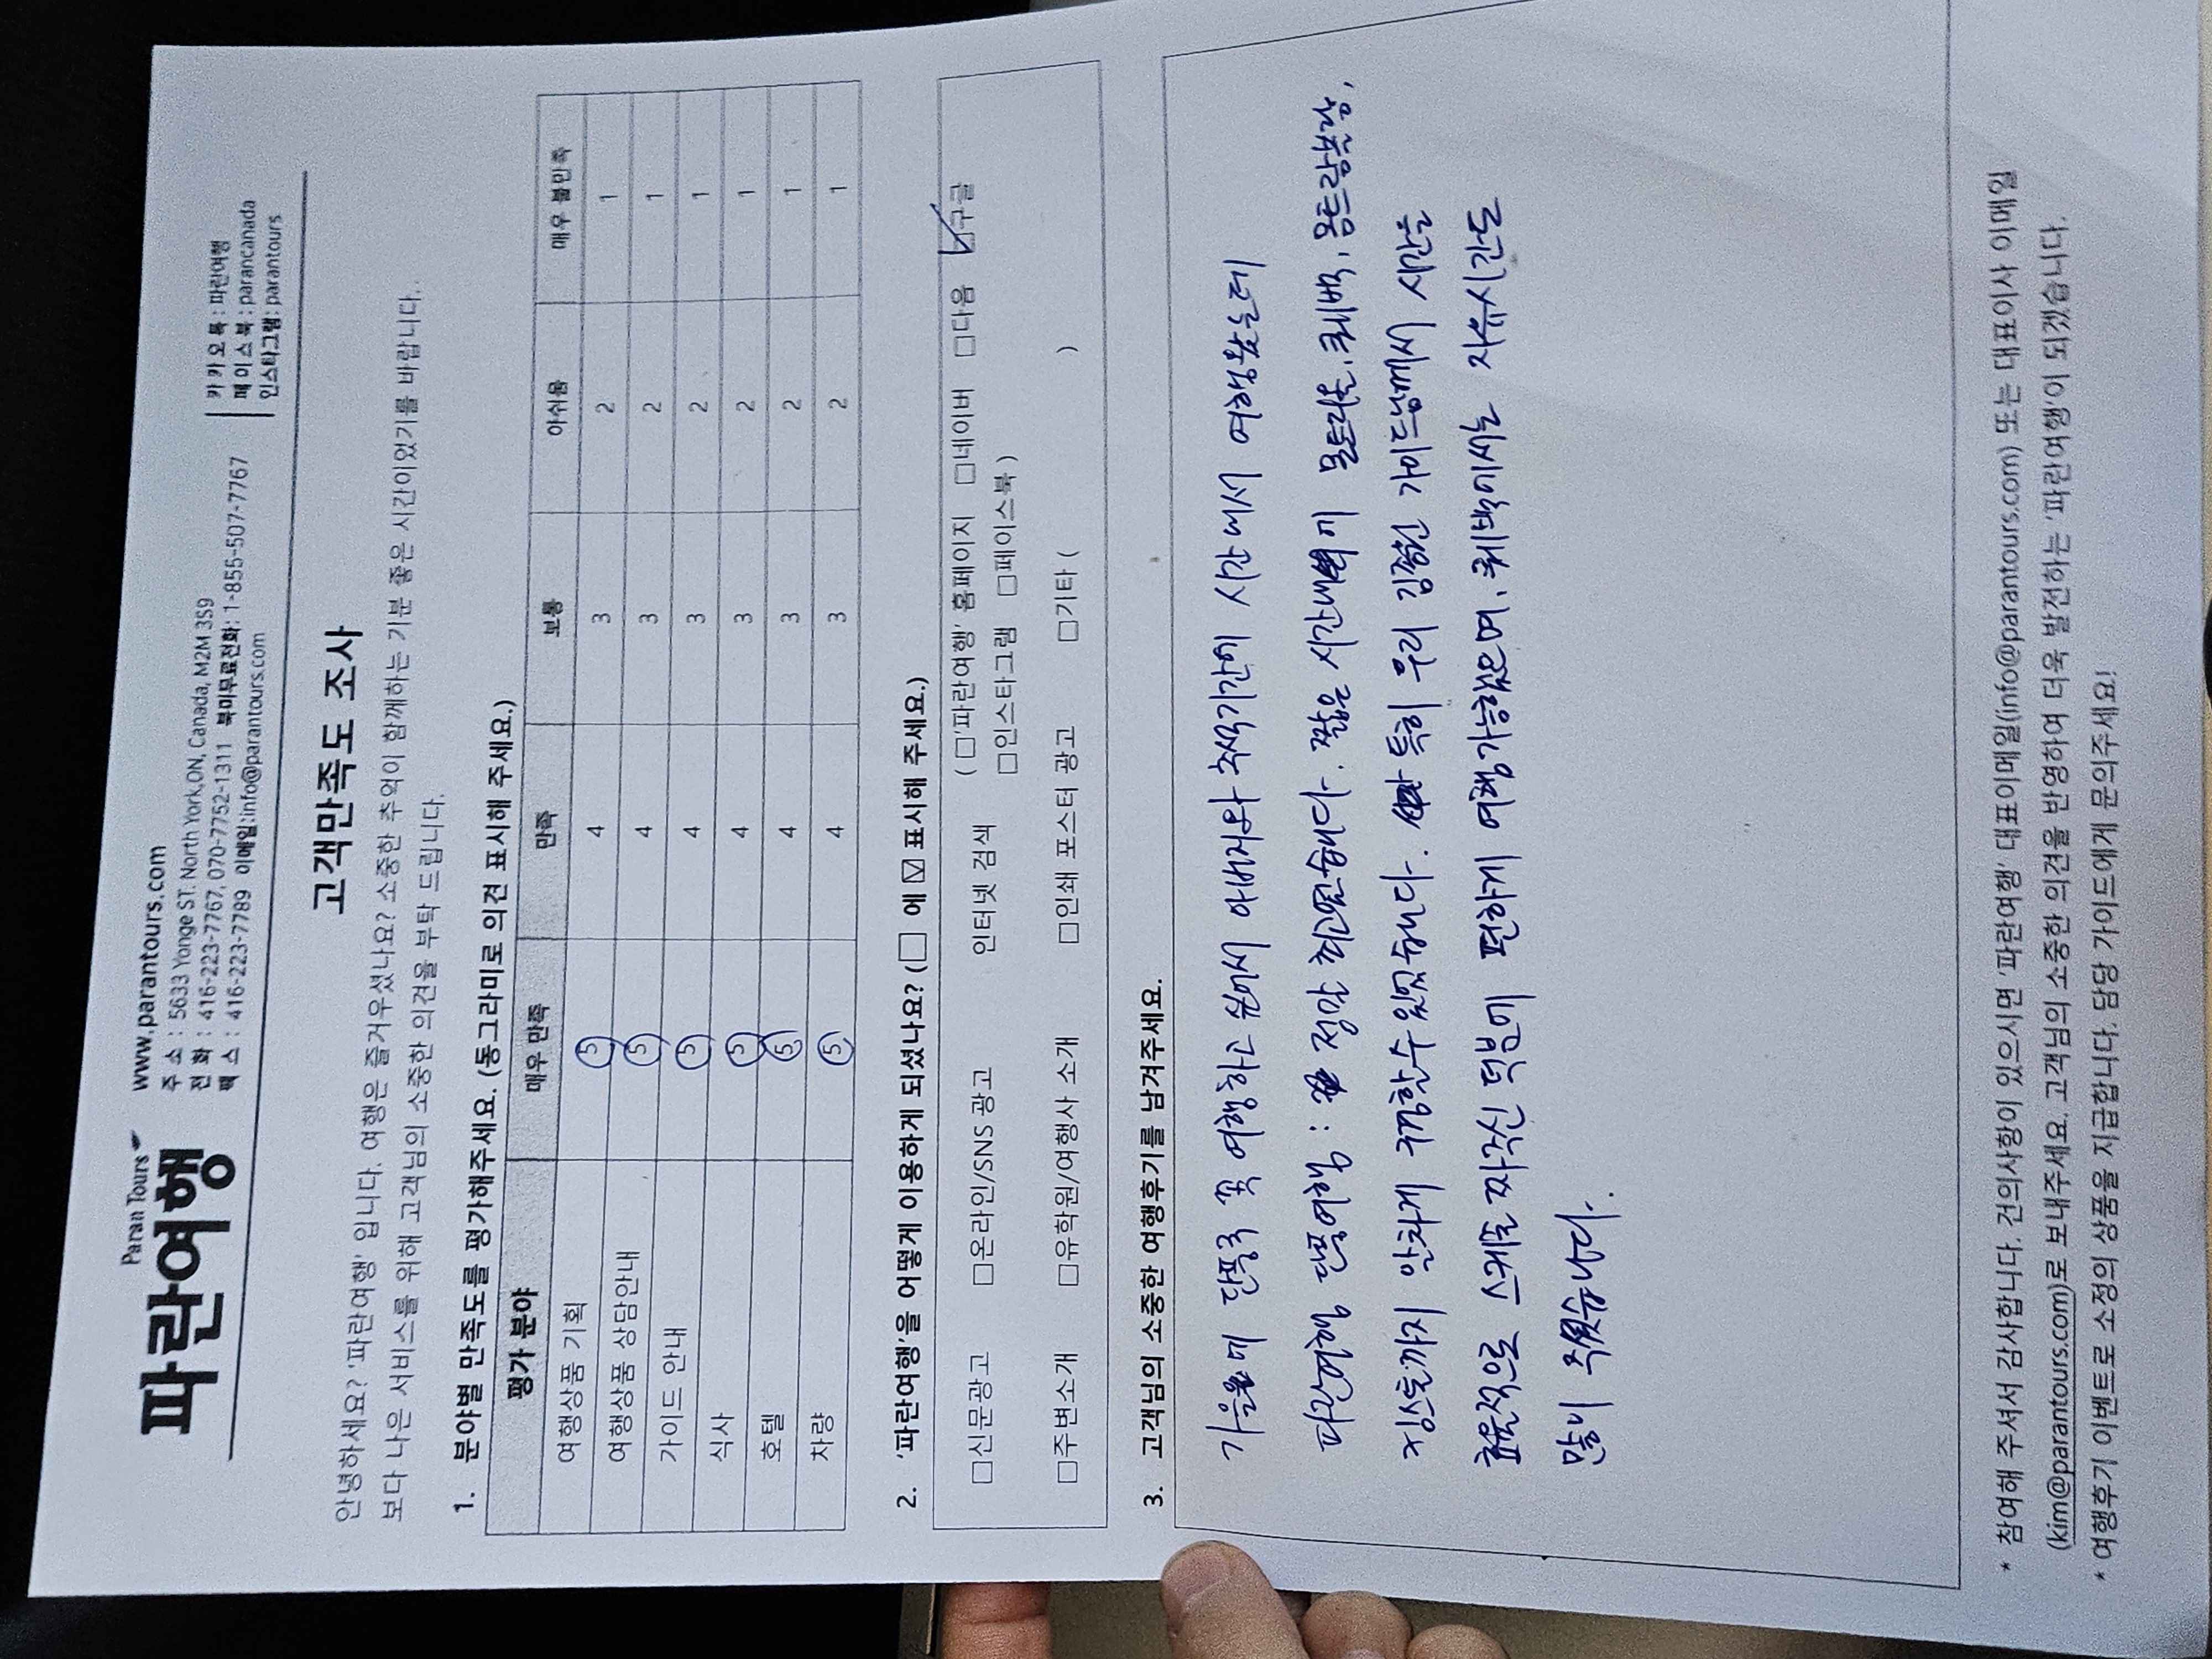 Paran Tours
파란여행
www.parantours.com
주 소 : 5633 Yonge ST. North York,ON, Canada, M2M 3S9
전 화 : 416-223-7767, 070-7752-1311 북미무료전화: 1-855-507-7767
팩 스 : 416-223-7789 이메일:info@parantours.com
카 카 오 톡 : 파란여행
페 이 스 북 : parancanada
인스타그램: parantours
고객만족도 조사
안녕하세요? '파란여행' 입니다. 여행은 즐거우셨나요? 소중한 추억이 함께하는 기분 좋은 시간이었기를 바랍니다..
보다 나은 서비스를 위해 고객님의 소중한 의견을 부탁 드립니다.
1. 분야별 만족도를 평가해주세요. (동그라미로 의견 표시해 주세요.)
평가 분야 매우 만족 만족 보통 아쉬움 매우 불만족
여행상품 기획 5 4 3 2 1
여행상품 상담안내 5 4 3 2 1
가이드 안내 5 4 3 2 1
식사 5 4 3 2 1
호텔 5 4 3 2 1
차량 5 4 3 2 1
2. '파란여행'을 어떻게 이용하게 되셨나요? (□ 에 ☑ 표시해 주세요.)
□신문광고 □온라인/SNS 광고 인터넷 검색 (□'파란여행' 홈페이지 □네이버 □다음 ☑구글
□인스타그램 □페이스북 )
□주변소개 □유학원/여행사 소개 □인쇄 포스터 광고 □기타 ( )
3. 고객님의 소중한 여행후기를 남겨주세요.
가을에 단풍국 꼭 여행하고 싶어서 아버지와 추석기간에 시간 내서 여행왔는데
파란여행 단풍여행 : 정말 최고였습니다. 짧은 시간내에 몬트리올, 퀘벡, 몽트랑블랑,
킹스톤까지 알차게 구경할수 있었습니다. 특히 우리 가이드님께서 시간을
효율적으로 스케줄 짜주신 덕분에 편하게 여행가능했으며, 퀘벡에서는 자유시간도
많이 주셨습니다.
* 참여해 주셔서 감사합니다. 건의사항이 있으시면 '파란여행' 대표이메일(info@parantours.com) 또는 대표이사 이메일
(kim@parantours.com)로 보내주세요. 고객님의 소중한 의견을 반영하여 더욱 발전하는 '파란여행'이 되겠습니다.
* 여행후기 이벤트로 소정의 상품을 지급합니다. 담당 가이드에게 문의주세요!